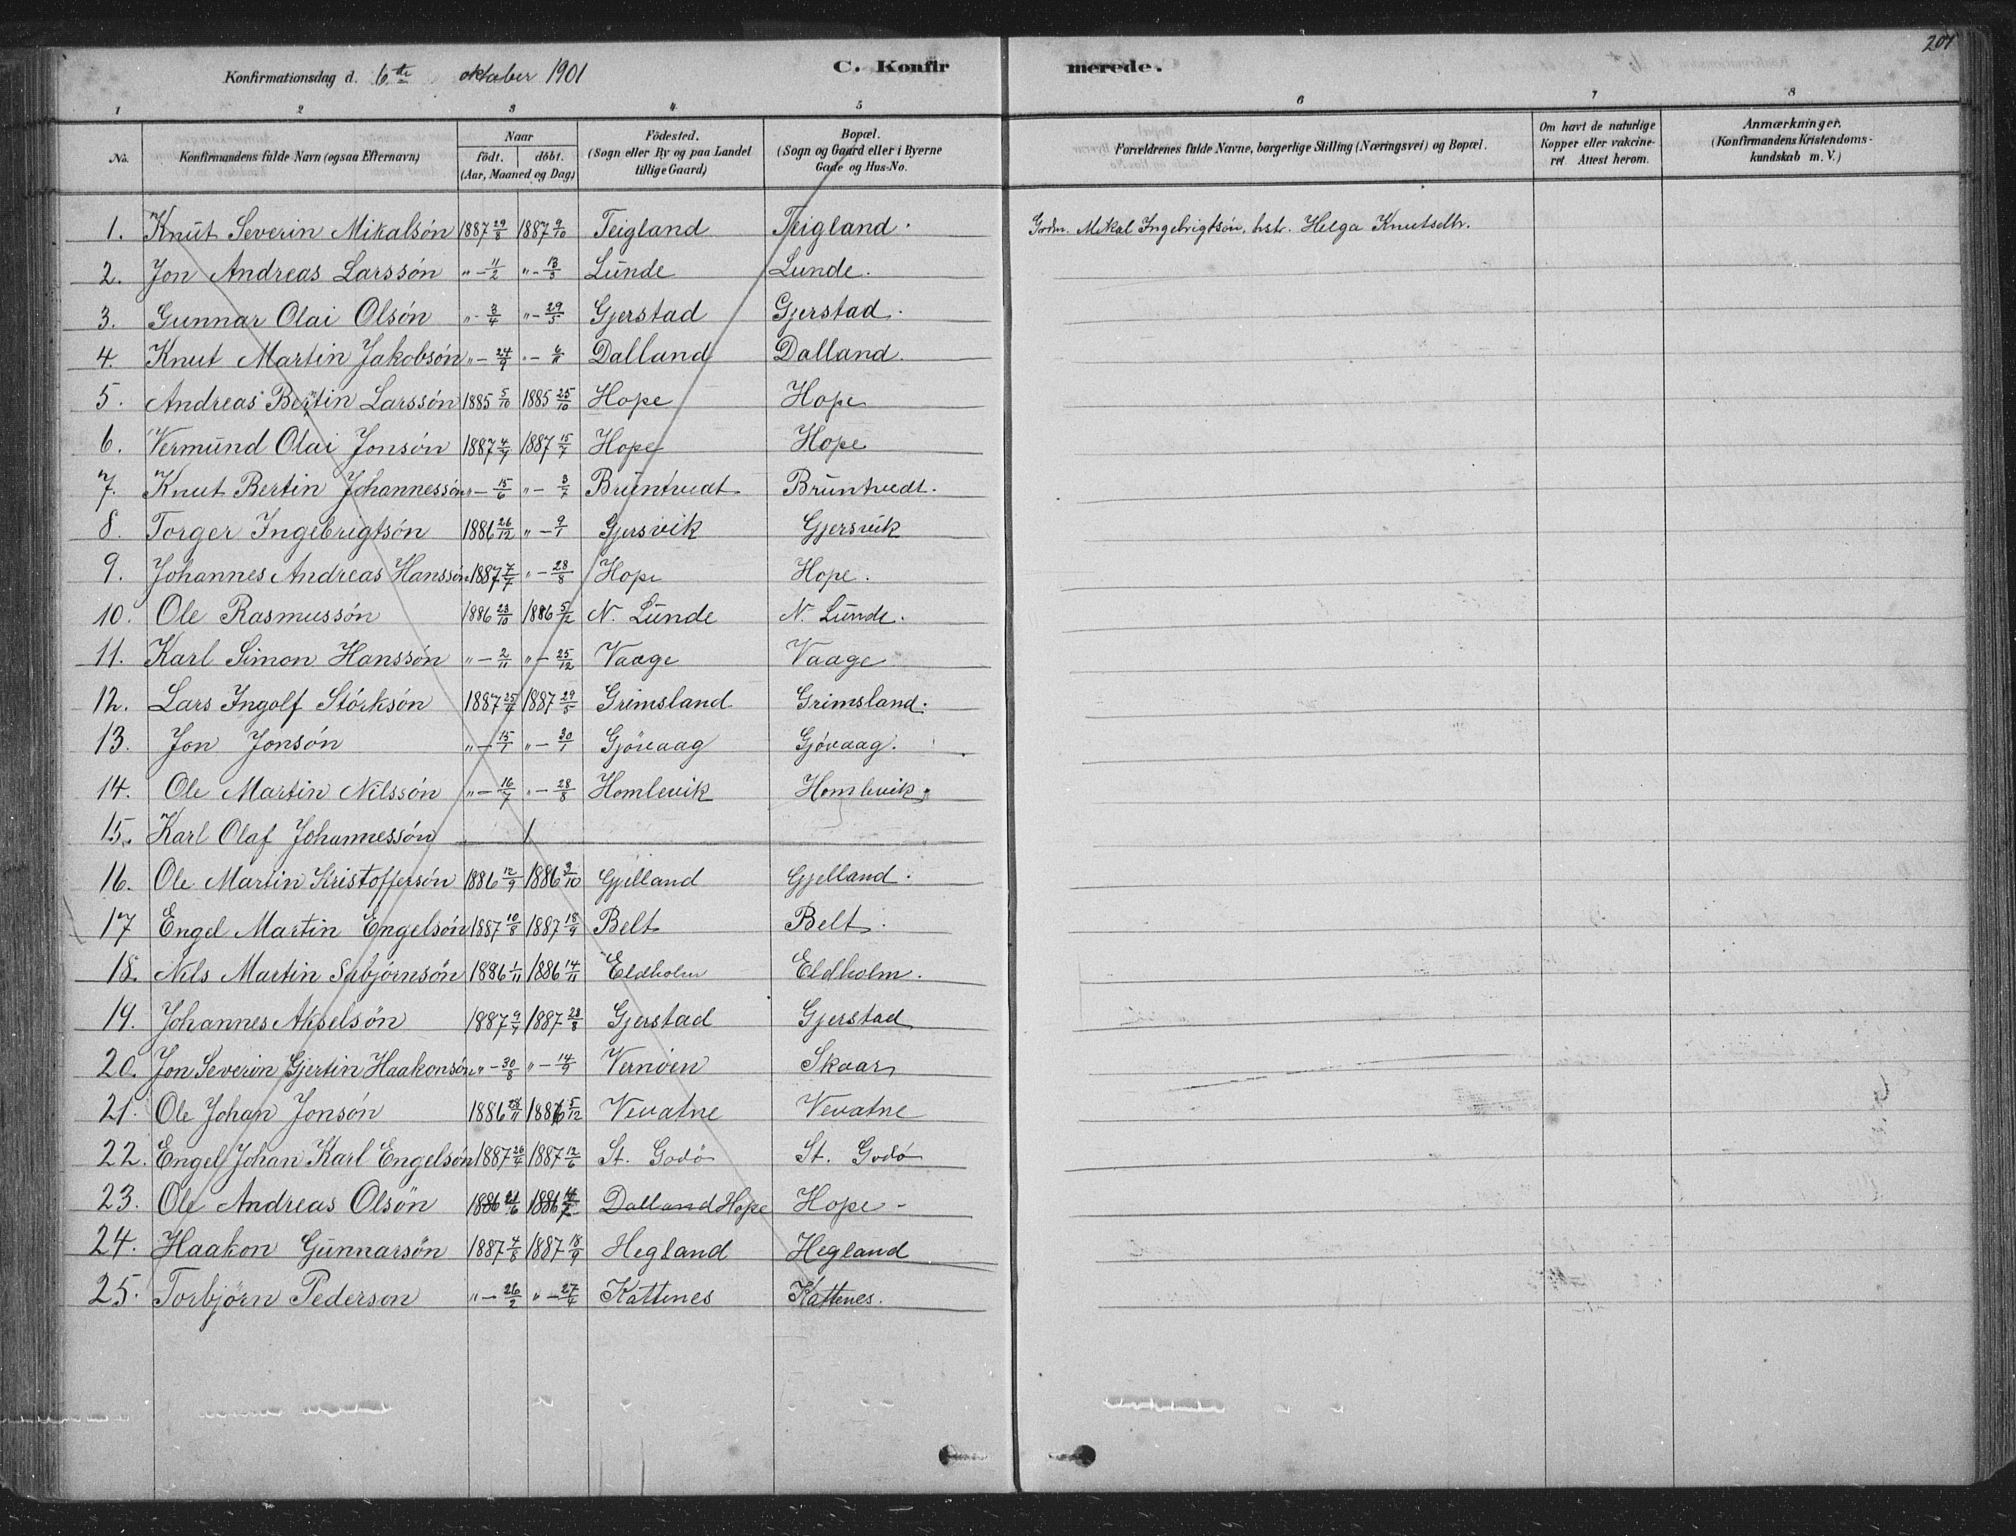 201
Konfirmationsdag d. 6te oktober 1901 C. Konfirmerede.
1 2 3 4 5 6 7 8
No. Konfirmandens fulde Navn (ogsaa Efternavn) Naar födt. döbt. (Aar, Maaned og Dag) Födested. (Sogn eller By og paa Landet tillige Gaard) Bopæl. (Sogn og Gaard eller i Byerne Gade og Hus-No. Forældrenes fulde Navne, borgerlige Stilling (Næringsvei) og Bopæl. Om havt de naturlige Kopper eller vakcineret Attest herom. Anmærkninger. (Konfirmandens Kristendomskundskab m. V.)
1. Knut Severin Mikalsøn 1887 29/8 1887 9/10 Teigland Teigland. Grdm. Mikal Ingebrigtsøn, hstr. Helga Knutsdtr.
2. Jon Andreas Larssøn " - 11/2 " - 13/3 Lunde Lunde.
3. Gunnar Olai Olsøn " - 3/4 " - 29/5 Gjerstad Gjerstad.
4. Knut Martin Jakobsøn " - 24/9 " - 6/11 Dalland Dalland.
5. Andreas Bertin Larssøn 1885 5/10 1885 25/10 Hope Hope
6. Vermund Olai Jonsøn 1887 1887 Hope Hope
7. Knut Bertin Johannessøn " - 15/6 " - 3/7 Bruntvedt Bruntvedt.
8. Torger Ingebrigtsøn 1886 26/12 " - 9/1 Gjersvik Gjersvik
9. Johannes Andreas Hanssøn 1887 7/7 " - 28/8 Hope Hope.
10. Ole Rasmussøn 1886 23/10 1886 5/12 N. Lunde N. Lunde.
11. Karl Simon Hanssøn " - 2/11 " - 25/12 Vaage Vaage
12. Lars Ingolf Størksøn 1887 25/4 1887 29/5 Grimsland Grimsland.
13. Jon Jonsøn " - 15/1 " - 30/1 Gjøvaag Gjøvaag.
14. Ole Martin Nilssøn " - 16/7 " - 28/8 Homlevik Homlevik
15. Karl Olaf Johannessøn
16. Ole Martin Kristoffersøn 1886 12/9 1886 3/10 Gjelland Gjelland.
17 Engel Martin Engelsøn 1887 10/8 1887 18/9 Belt Belt.
18. Nils Martin Sæbjørnsøn 1886 1/11 1886 14/11 Eldholm Eldholm.
19. Johannes Akselsøn 1887 1887 28/8 Gjerstad Gjerstad
20. Jon Severin Gjertin Haakonsøn " - 30/8 " - Vernøen Skaar
21. Ole Johan Jonsøn 1886 1886 5/12 Vevatne Vevatne
22. Engel Johan Karl Engelsøn 1887 26/4 1887 12/6 St. Godø St. Godø
23. Ole Andreas Olsøn 1886 1886 Dalland Hope Hope -
24. Haakon Gunnarsøn 1887 4/8 1887 18/9 Hegland Hegland
25. Torbjørn Pederson " - 26/2 " - 27/4 Kattenes Kattenes.